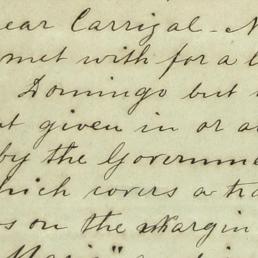 ear Carrizal - N
met with for a l
Domingo but
t given in or a
by the Governme
hich covers a tra
s on the Margin
Maria" a